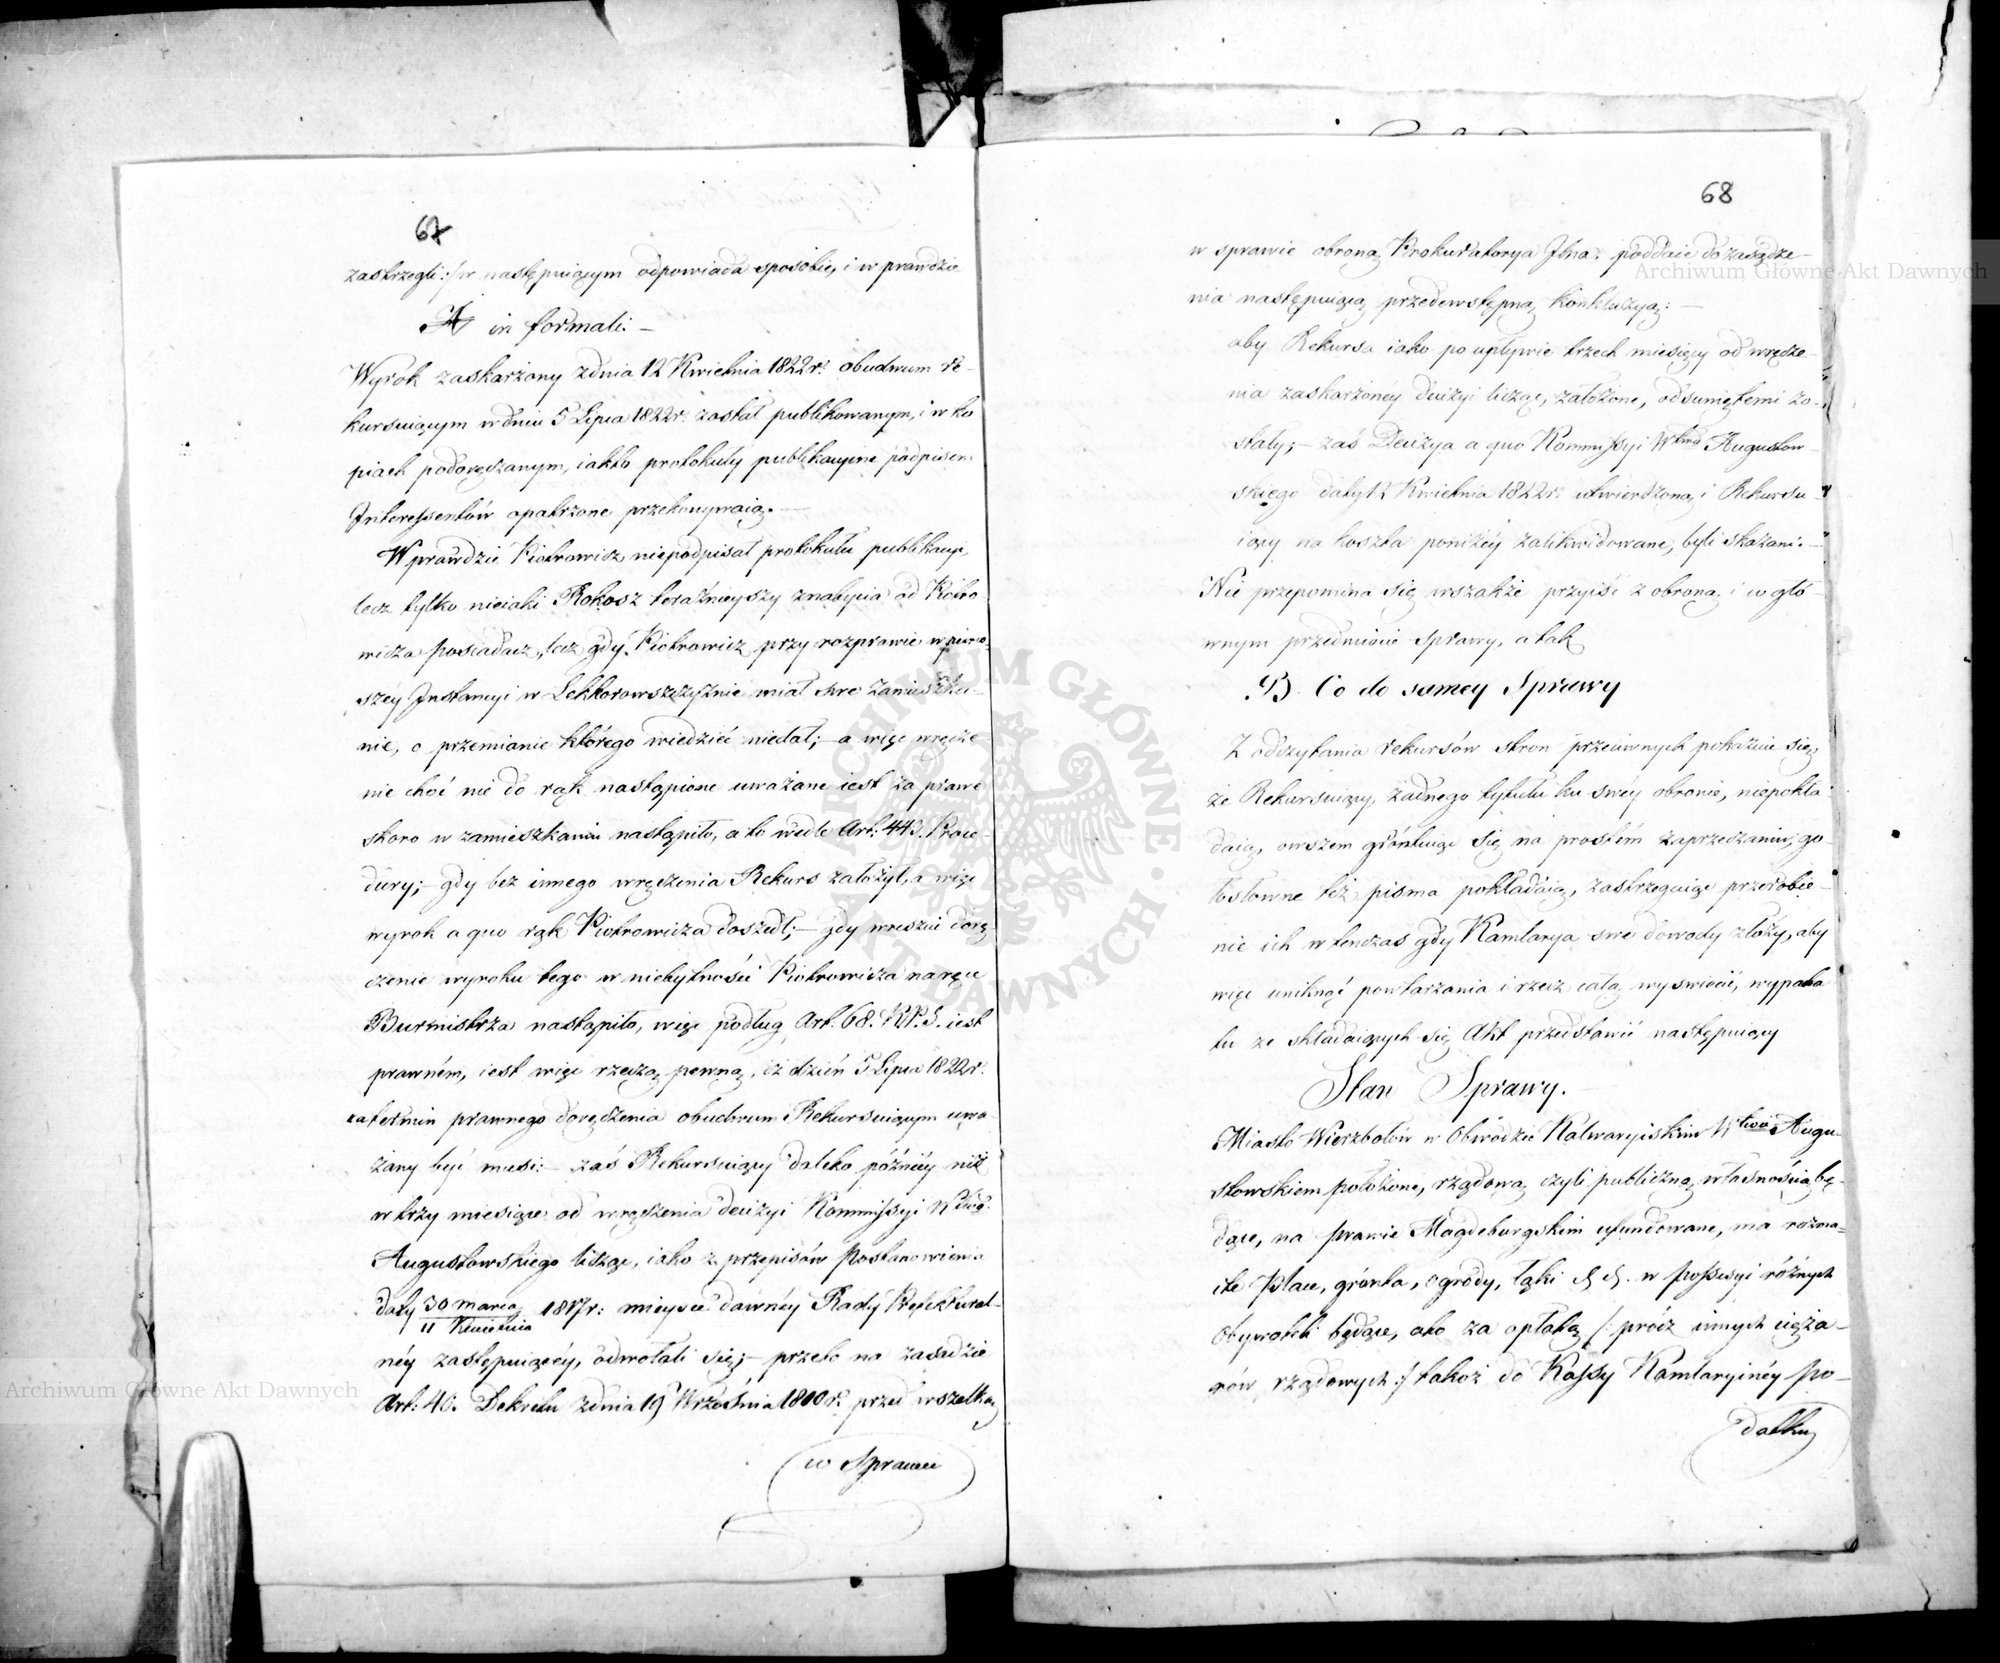 67
zastrzegli :/ w następuiącym odpowiada sposobie, i w prawdzie
A in formali: —
Wyrok zaskarżony z dnia 12 Kwietnia 1822 r. obudwum re-
kursuiącym w dniu 5 Lipca 1822 r. został publikowanym, i w ko
piach podoręczanym, iak to protokuły publikacyine podpisem
Interessentów opatrzone przekonywaią. —
Wprawdzie Piotrowicz niepodpisał protokułu publikacyi,
lecz tylko nieiaki Rokosz teraźnieyszy z nabycia od Piotro
wicza posiadacz, lecz gdy Piotrowicz przy rozprawie w pierw
széy Instancyi w Lektorowszczyznie miał swe zamieszka-
nie, o przemianie którego wiedzieć niedał; — a więc wręcze-
nie choć nie do rąk nastąpione uważane iest za prawe
skoro w zamieszkaniu nastąpiło, a to wedle Art: 443. Proce-
dury; — gdy bez innego wręczenia Rekurs założył, a więc
wyrok a quo rąk Piotrowicza doszedł; — gdy wreszcie dorę-
czenie wyroku tego w niebytności Piotrowicza na ręce
Burmistrza nastąpiło, więc podług Art. 68. K.P.S. iest
prawném, iest więc rzeczą pewną, iż dzień 5 Lipca 1822 r.
za termin prawnego doręczenia obudwum Rekursuiącym uwa
żany być musi: — zaś Rekursuiący daleko późniéy niż
w trzy miesiące od wręczenia decizyi Kommissyi Wdtwa
Augustowskiego licząc, iako z przepisów Postanowienia
daty 30 marca 1817 r: mieysce dawnéy Rady Prefektural-
11 Kwietnia
néy zastępuiącéy, odwołali się; — przeto na zasadzie
Art: 40. Dekretu z dnia 19 Września 1810 r. przed wszelką
w Sprawie
68
w sprawie obroną Prokuratorya Jlna. poddaie do zasądze-
nia następuiącą przedewstępną konkluzyą: —
aby Rekursa iako po upływie trzech miesięcy od wręcze-
nia zaskarżonéy decizyi licząc, założone, odsuniętemi zo-
stały; — zaś Decizya a quo Kommissyi Wtwa Augustow-
skiego daty 12 Kwietnia 1822 r. utwierdzoną i Rekursu
iący na koszta poniżéy zalikwidowane, byli skazani. —
Nie przepomina się wszakże przyiść z obroną i w głó-
wnym przedmiocie sprawy, a tak
B. Co do samey Sprawy
Z odczytania rekursów stron przeciwnych pokazuie się,
że Rekursuiący, żadnego tytułu ku swéy obronie, niepokła-
daią, owszem gróntuiąc się na prostém zaprzeczaniu, go-
łosłowne też pisma pokładaią, zastrzegaiąc przerobie-
nie ich w tenczas gdy Kamlarya swe dowody złoży, aby
więc uniknąć powtarzania i rzecz całą wyswiecić, wypada
tu ze składaiących się Akt przedstawić następuiący
Stan Sprawy. —
Miasto Wierzbołów w Obwodzie Kalwaryiskim Wtwa Augu-
stowskiem położone, rządową czyli publiczną własnością bę-
dące, na prawie Magdeburgskim ufundowane, ma rozma-
ite Place, grónta, ogrody, łąki & &. w possesyi różnych
Obywateli będące, oto za opłatą /: prócz innych cięża-
rów rządowych :/ takoż do Kassy Kamlaryinéy po-
datku
Archiwum Główne Akt Dawnych
Archiwum Główne Akt Dawnych
ARCHIWUM GŁÓWNE AKT DAWNYCH